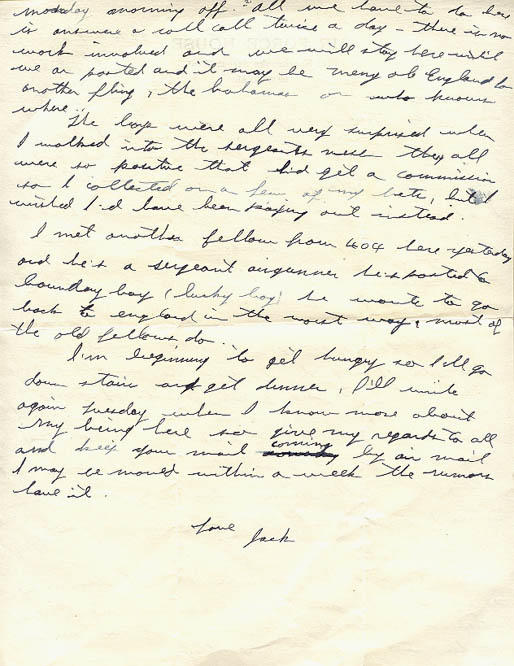 monday morning off. all we have to do here
is answer a roll call twice a day - there is no
work involved and we will stay here until
we are posted and it may be merry old England for
another fling, the bahamas or who knows
where.
The boys were all very surprised when
I walked into the sergeants mess they all
were so positive that I'd get a commission
so I collected on a few of my bets, but I
wished I'd have been paying out instead.
I met another fellow from 404 here yesterday
and he's a sergeant airgunner he's posted to
boundary bay (lucky boy) he wants to go
back to england in the worst way, most of
the old fellows do.
I'm beginning to get hungry so I'll go
down stairs and get dinner, I'll write
again tuesday when I know more about
my being here so give my regards to all
and keep your mail coming by air mail
I may be moved within a week the rumors
have it.
Love
Jack